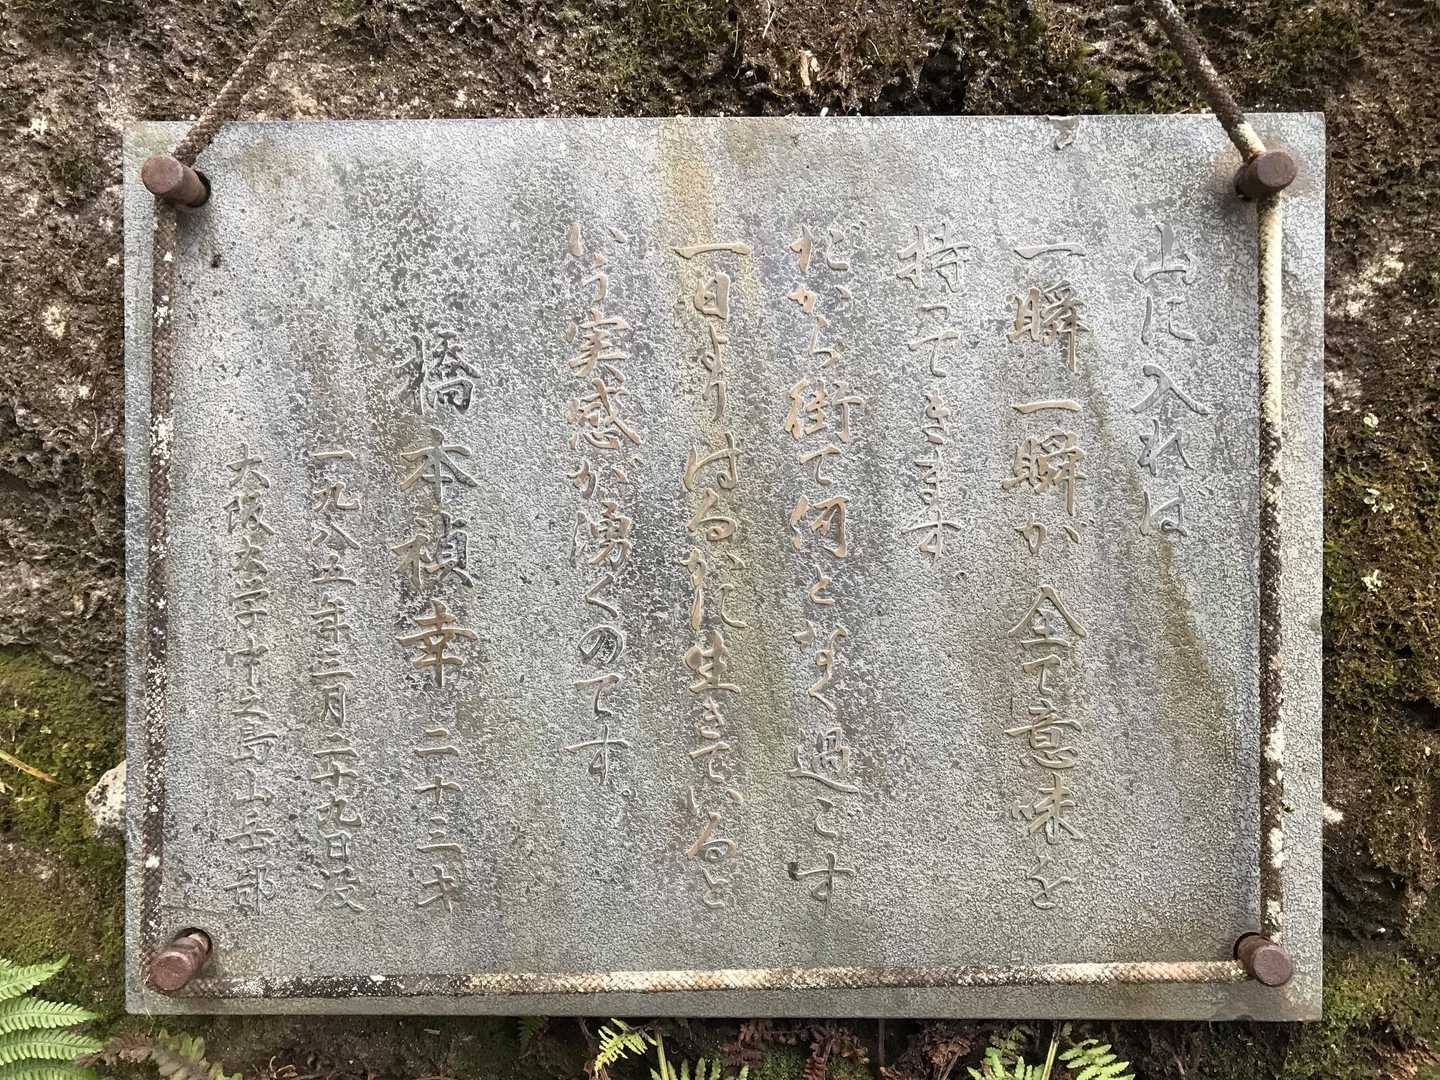 山に入れは
一瞬一瞬が全て意味を
持ってきます
だから街て何となく過こす
一日よりはるかに生きていると
いう実感が湧くのてす。
橋本禎幸 二十二才
一九八五年三月二十九日没
大阪大学中之島山岳部